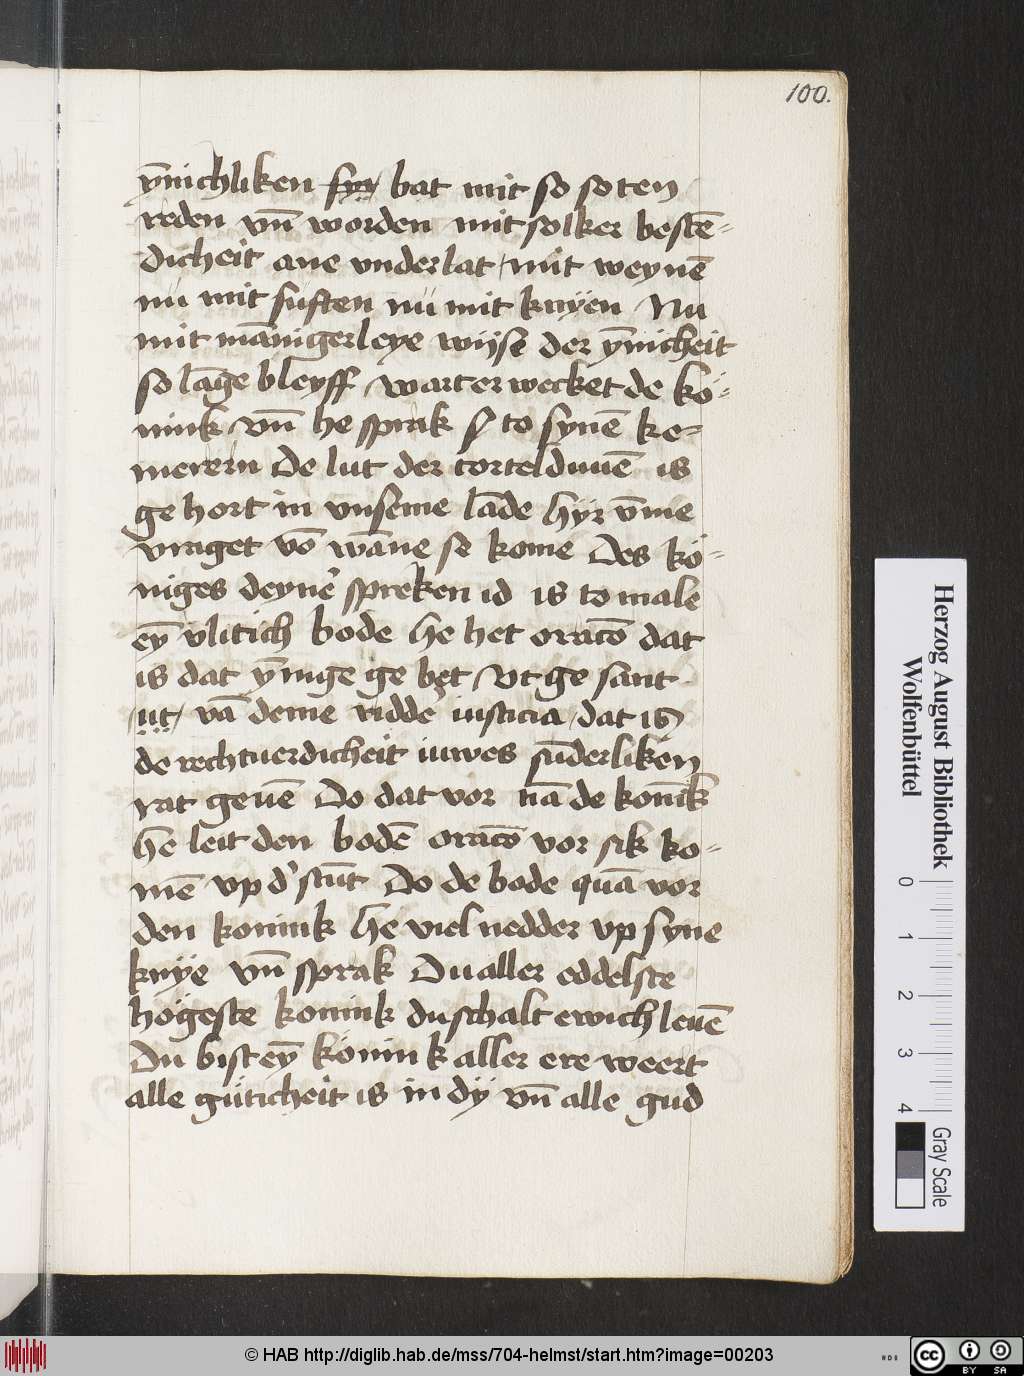 100.
ȳnichliken syn bat mit so soten
reden vn̄ worden mit solker bestē-
dicheit ane vnderlat / mit weynē
nu mit suften nu mit knyen Nu
mit māniger leye wijse der ȳnicheit
so lāge bleyff / wart er wecket de kö-
nink / vn̄ he sprak to synē ke-
merern De lut der torteldunuē is
ge hort in vnseme lāde hyr v̄me
vraget vō wāne se kome Des kö-
niges deyneʼ spreken id is to male
eȳ vlitich bode he het oracō dat
is dat ȳnige ge bet / vt ge sant
ut / vā deme riddeʼ iusticia / dat is
de rechtuerdicheit iuwes sūderliken
rat geuē Do dat vor nā de konīk
he leit den bodē oracō vor sik ko-
mē vp dʼ stūt Do de bode quā vor
den konink he viel nedder vp syne
knye vn̄ sprak Du aller eddelste
högeste konink du schalt ewich leuē
Du bist eȳ könink aller ere weert
alle güticheit is in dÿ vn̄ alle gud
Herzog August Bibliothek
Wolfenbüttel
0 1 2 3 4
Gray Scale
© HAB http://diglib.hab.de/mss/704-helmst/start.htm?image=00203
HAB
cc BY SA